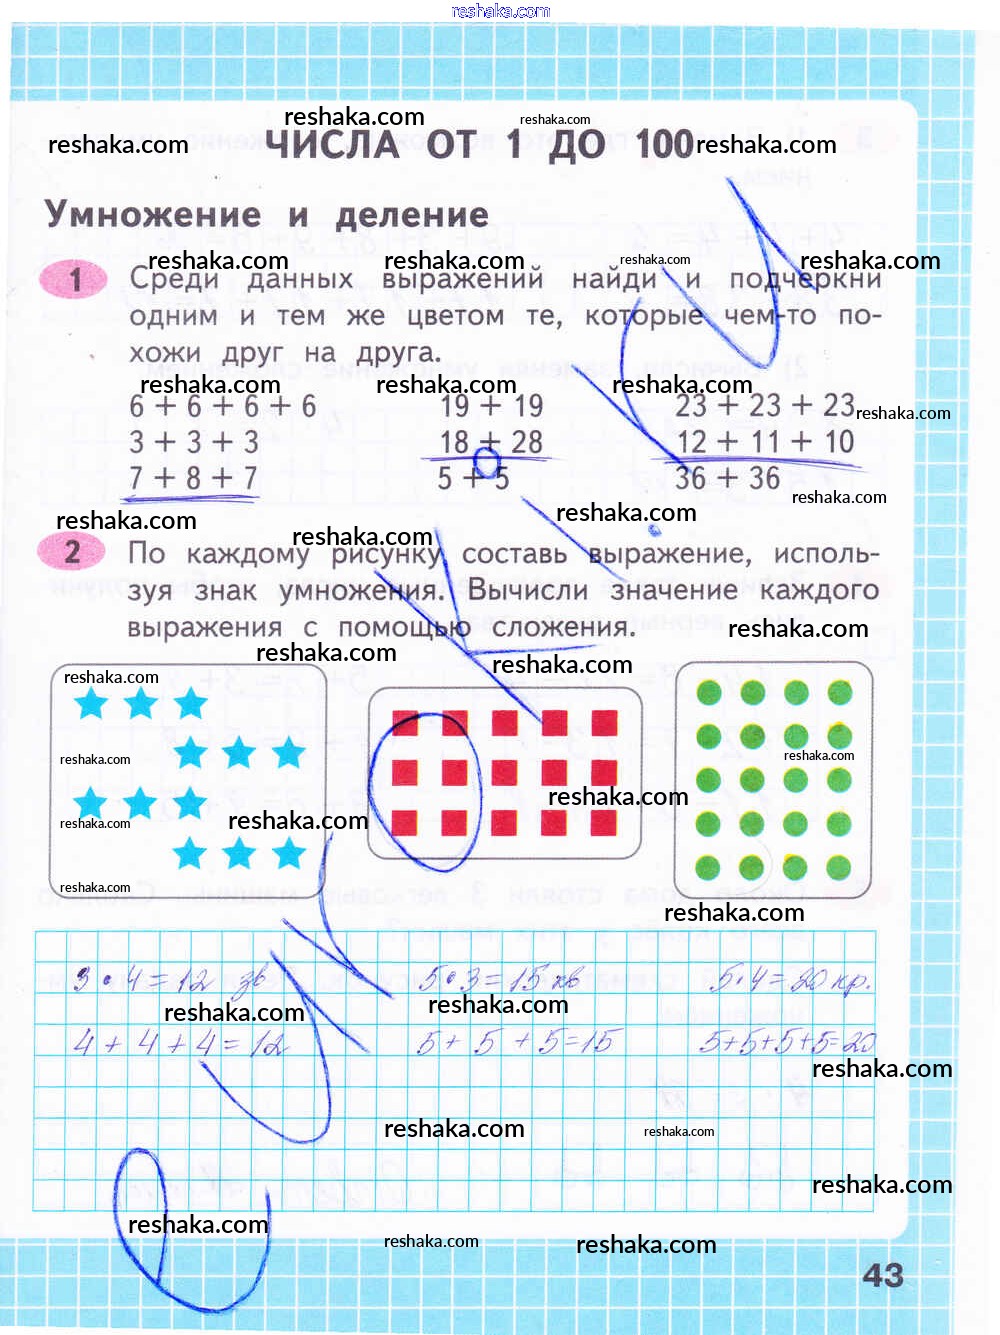 reshaka.com
reshaka.com
reshaka.com
ЧИСЛА ОТ 1 ДО 100
reshaka.com
reshaka.com
Умножение и деление
reshaka.com
reshaka.com
reshaka.com
reshaka.com
1 Среди данных выражений найди и подчеркни
одним и тем же цветом те, которые чем-то по-
хожи друг на друга.
reshaka.com
reshaka.com
reshaka.com
6 + 6 + 6 + 6 19 + 19 23 + 23 + 23
reshaka.com
3 + 3 + 3 18 + 28 12 + 11 + 10
7 + 8 + 7 5 + 5 36 + 36
reshaka.com
reshaka.com
reshaka.com
reshaka.com
2 По каждому рисунку составь выражение, исполь-
зуя знак умножения. Вычисли значение каждого
выражения с помощью сложения.
reshaka.com
reshaka.com
reshaka.com
reshaka.com
reshaka.com
reshaka.com
reshaka.com
reshaka.com
reshaka.com
reshaka.com
reshaka.com
3 • 4 = 12 зв 5 • 3 = 15 кв 5 • 4 = 20 кр.
reshaka.com
reshaka.com
4 + 4 + 4 = 12 5 + 5 + 5 = 15 5+5+5+5=20
reshaka.com
reshaka.com
reshaka.com
reshaka.com
reshaka.com
reshaka.com
reshaka.com
43